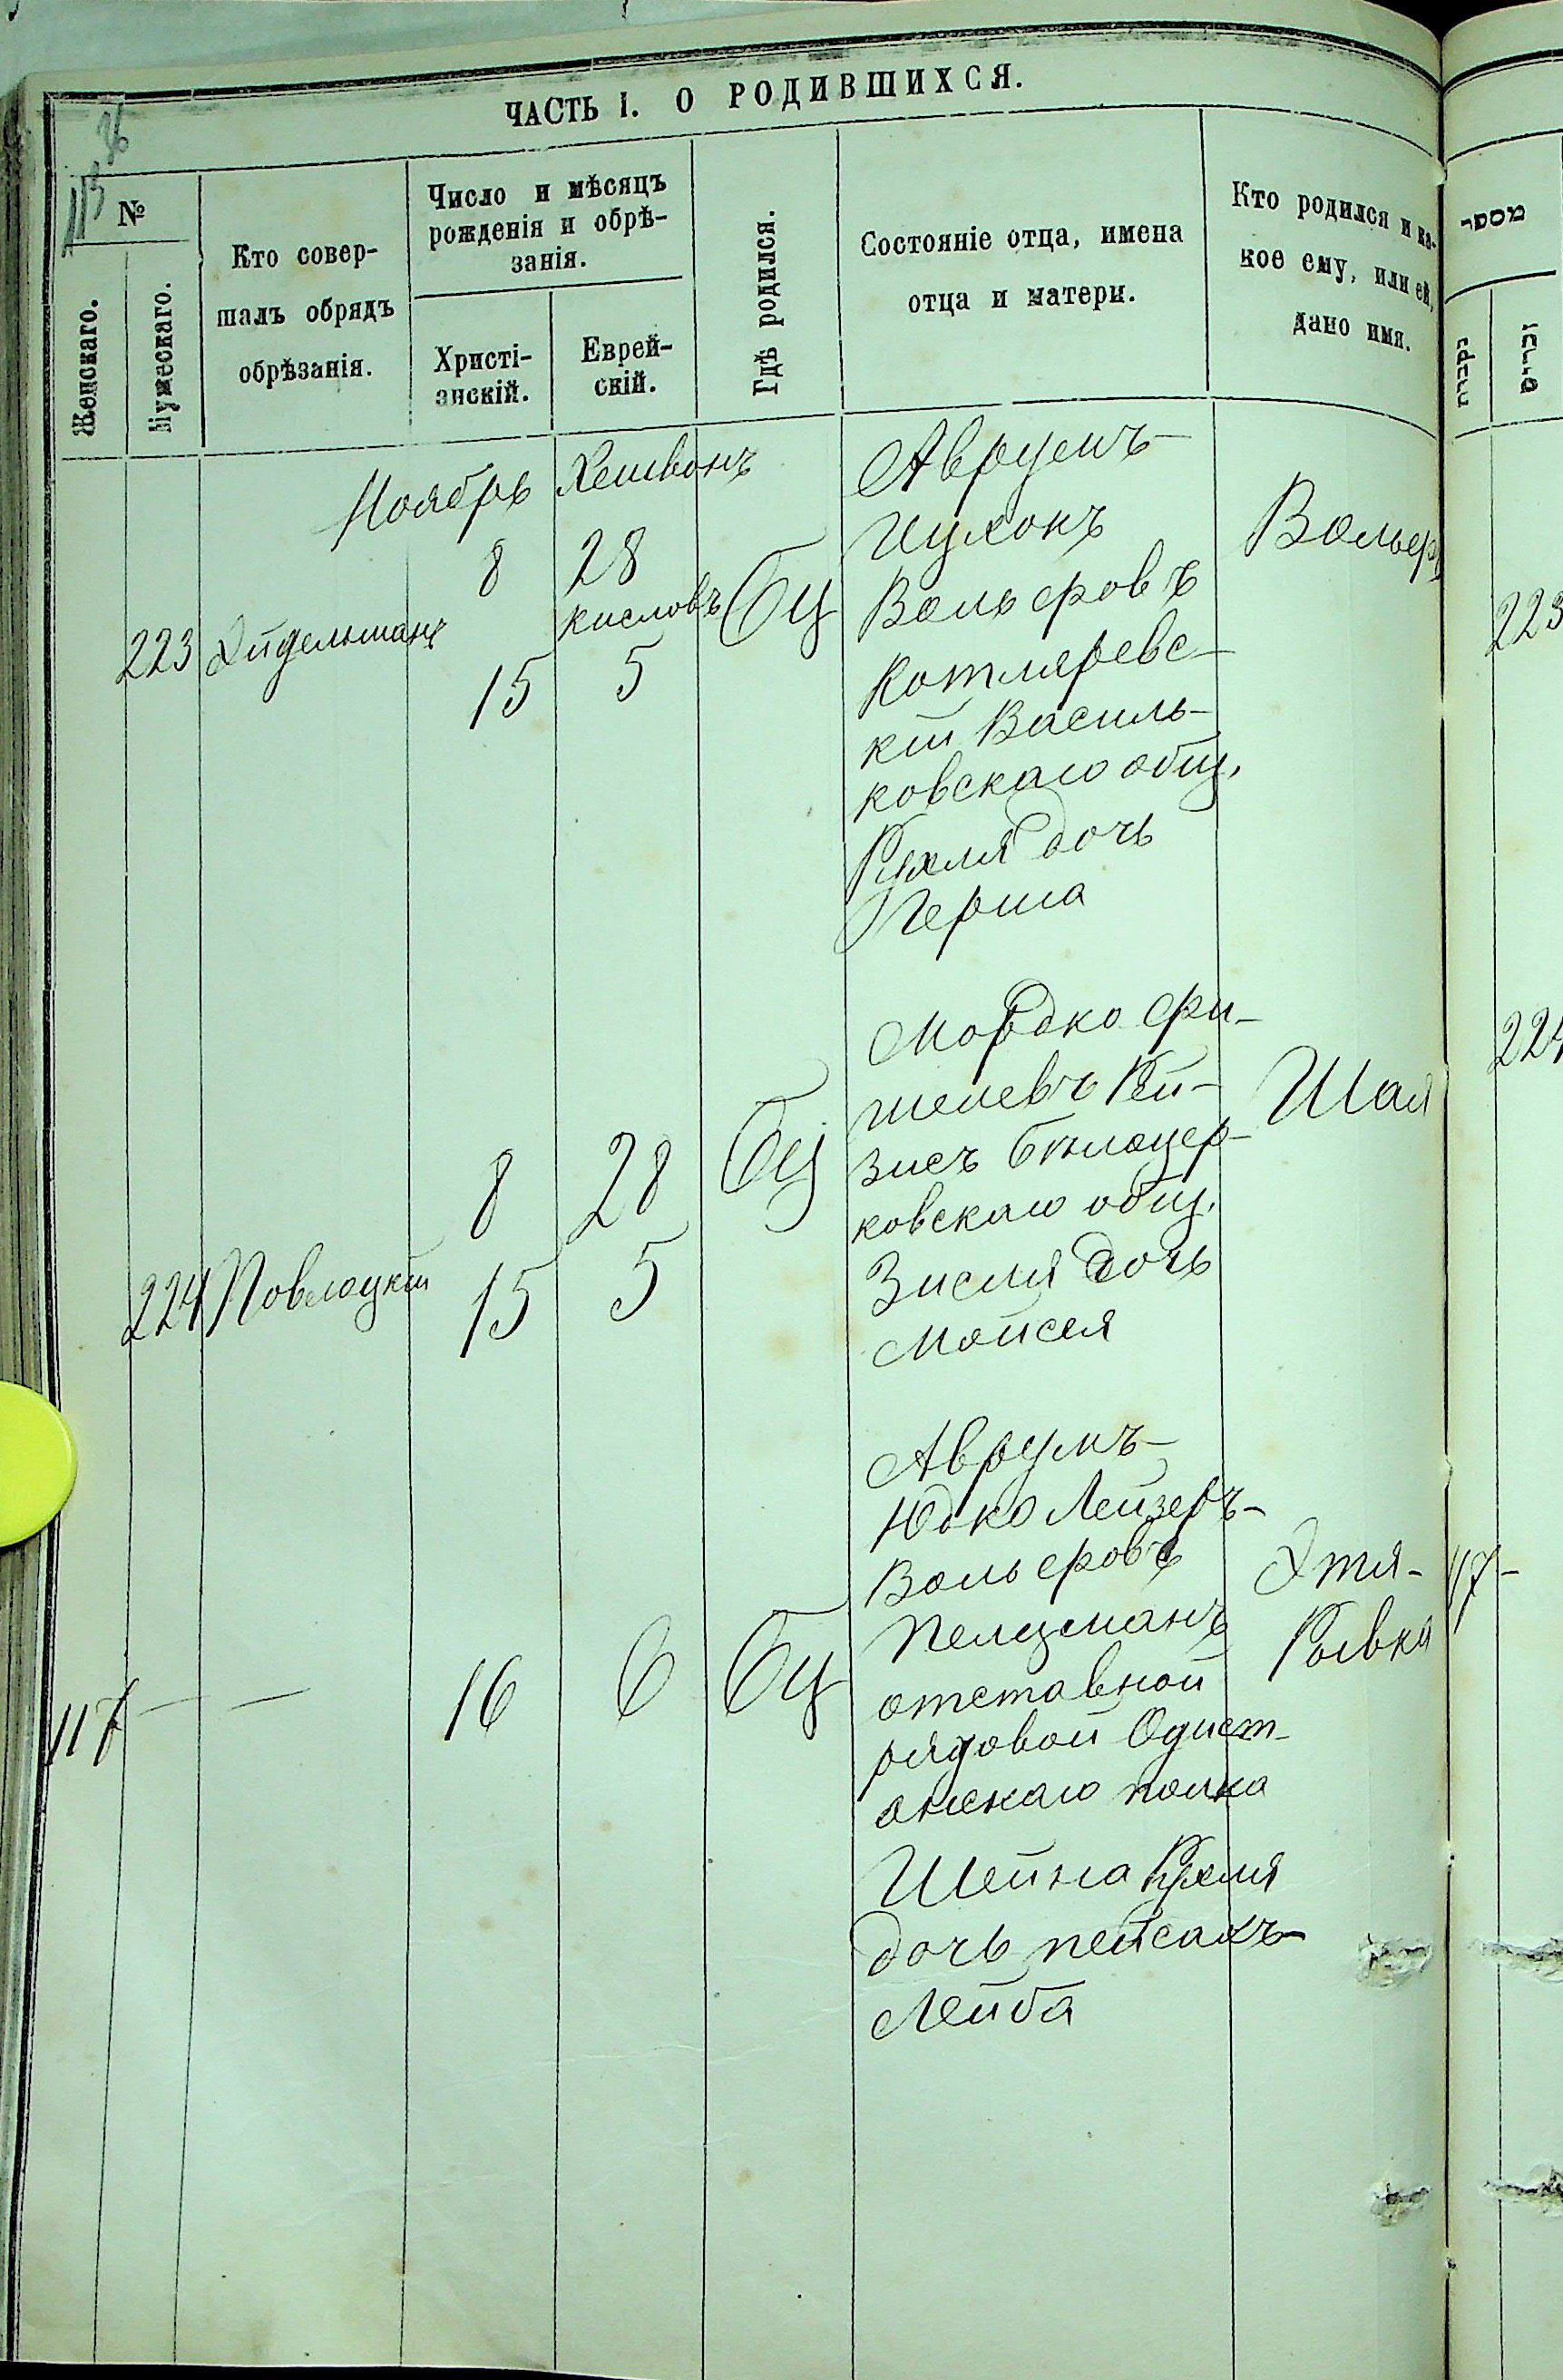 ЧАСТЬ I. О РОДИВШИХСЯ.
№
Женскаго.
Мужескаго.
Кто совер-
шалъ обрядъ
обрѣзанія.
Число и мѣсяцъ
рожденія и обрѣ-
занія.
Христі-
анскій.
Еврей-
скій.
Гдѣ родился.
Состояніе отца, имена
отца и матери.
Кто родился и ка-
кое ему, или ей,
дано имя.
מספר
נקבות
זכרים
Ноябрь Хешвонъ
8 28
Кисловъ
15 5
223 Эйдельманъ
Бц
Аврумъ-
Ицхокъ
Вольфовъ
Котляревс-
кій Василь-
ковскаго общ.
Рухля дочь
Герша
Вольф
223
224 Поволоцкій
8 28
15 5
Бц
Мордко Фи-
шелевъ Рей-
зисъ Бѣлоцер-
ковскаго общ.
Зисля дочь
Мойсея
Шая
224
117 — —
16 6 Бц
Аврумъ-
Юдко Лейзеръ-
Вольфовъ
Пельцманъ
отставной
рядовой
полка
Шейна Рухля
дочь Пейсахъ-
Лейба
Этя-
Рывка
117 -